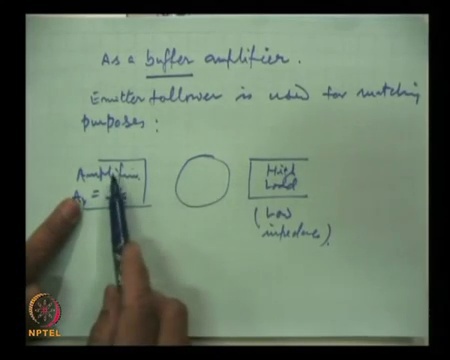 As a buffer amplifier.
Emitter follower is used for matching
purposes :
Amplifier
High
Load
(Low
impedance)
NPTEL